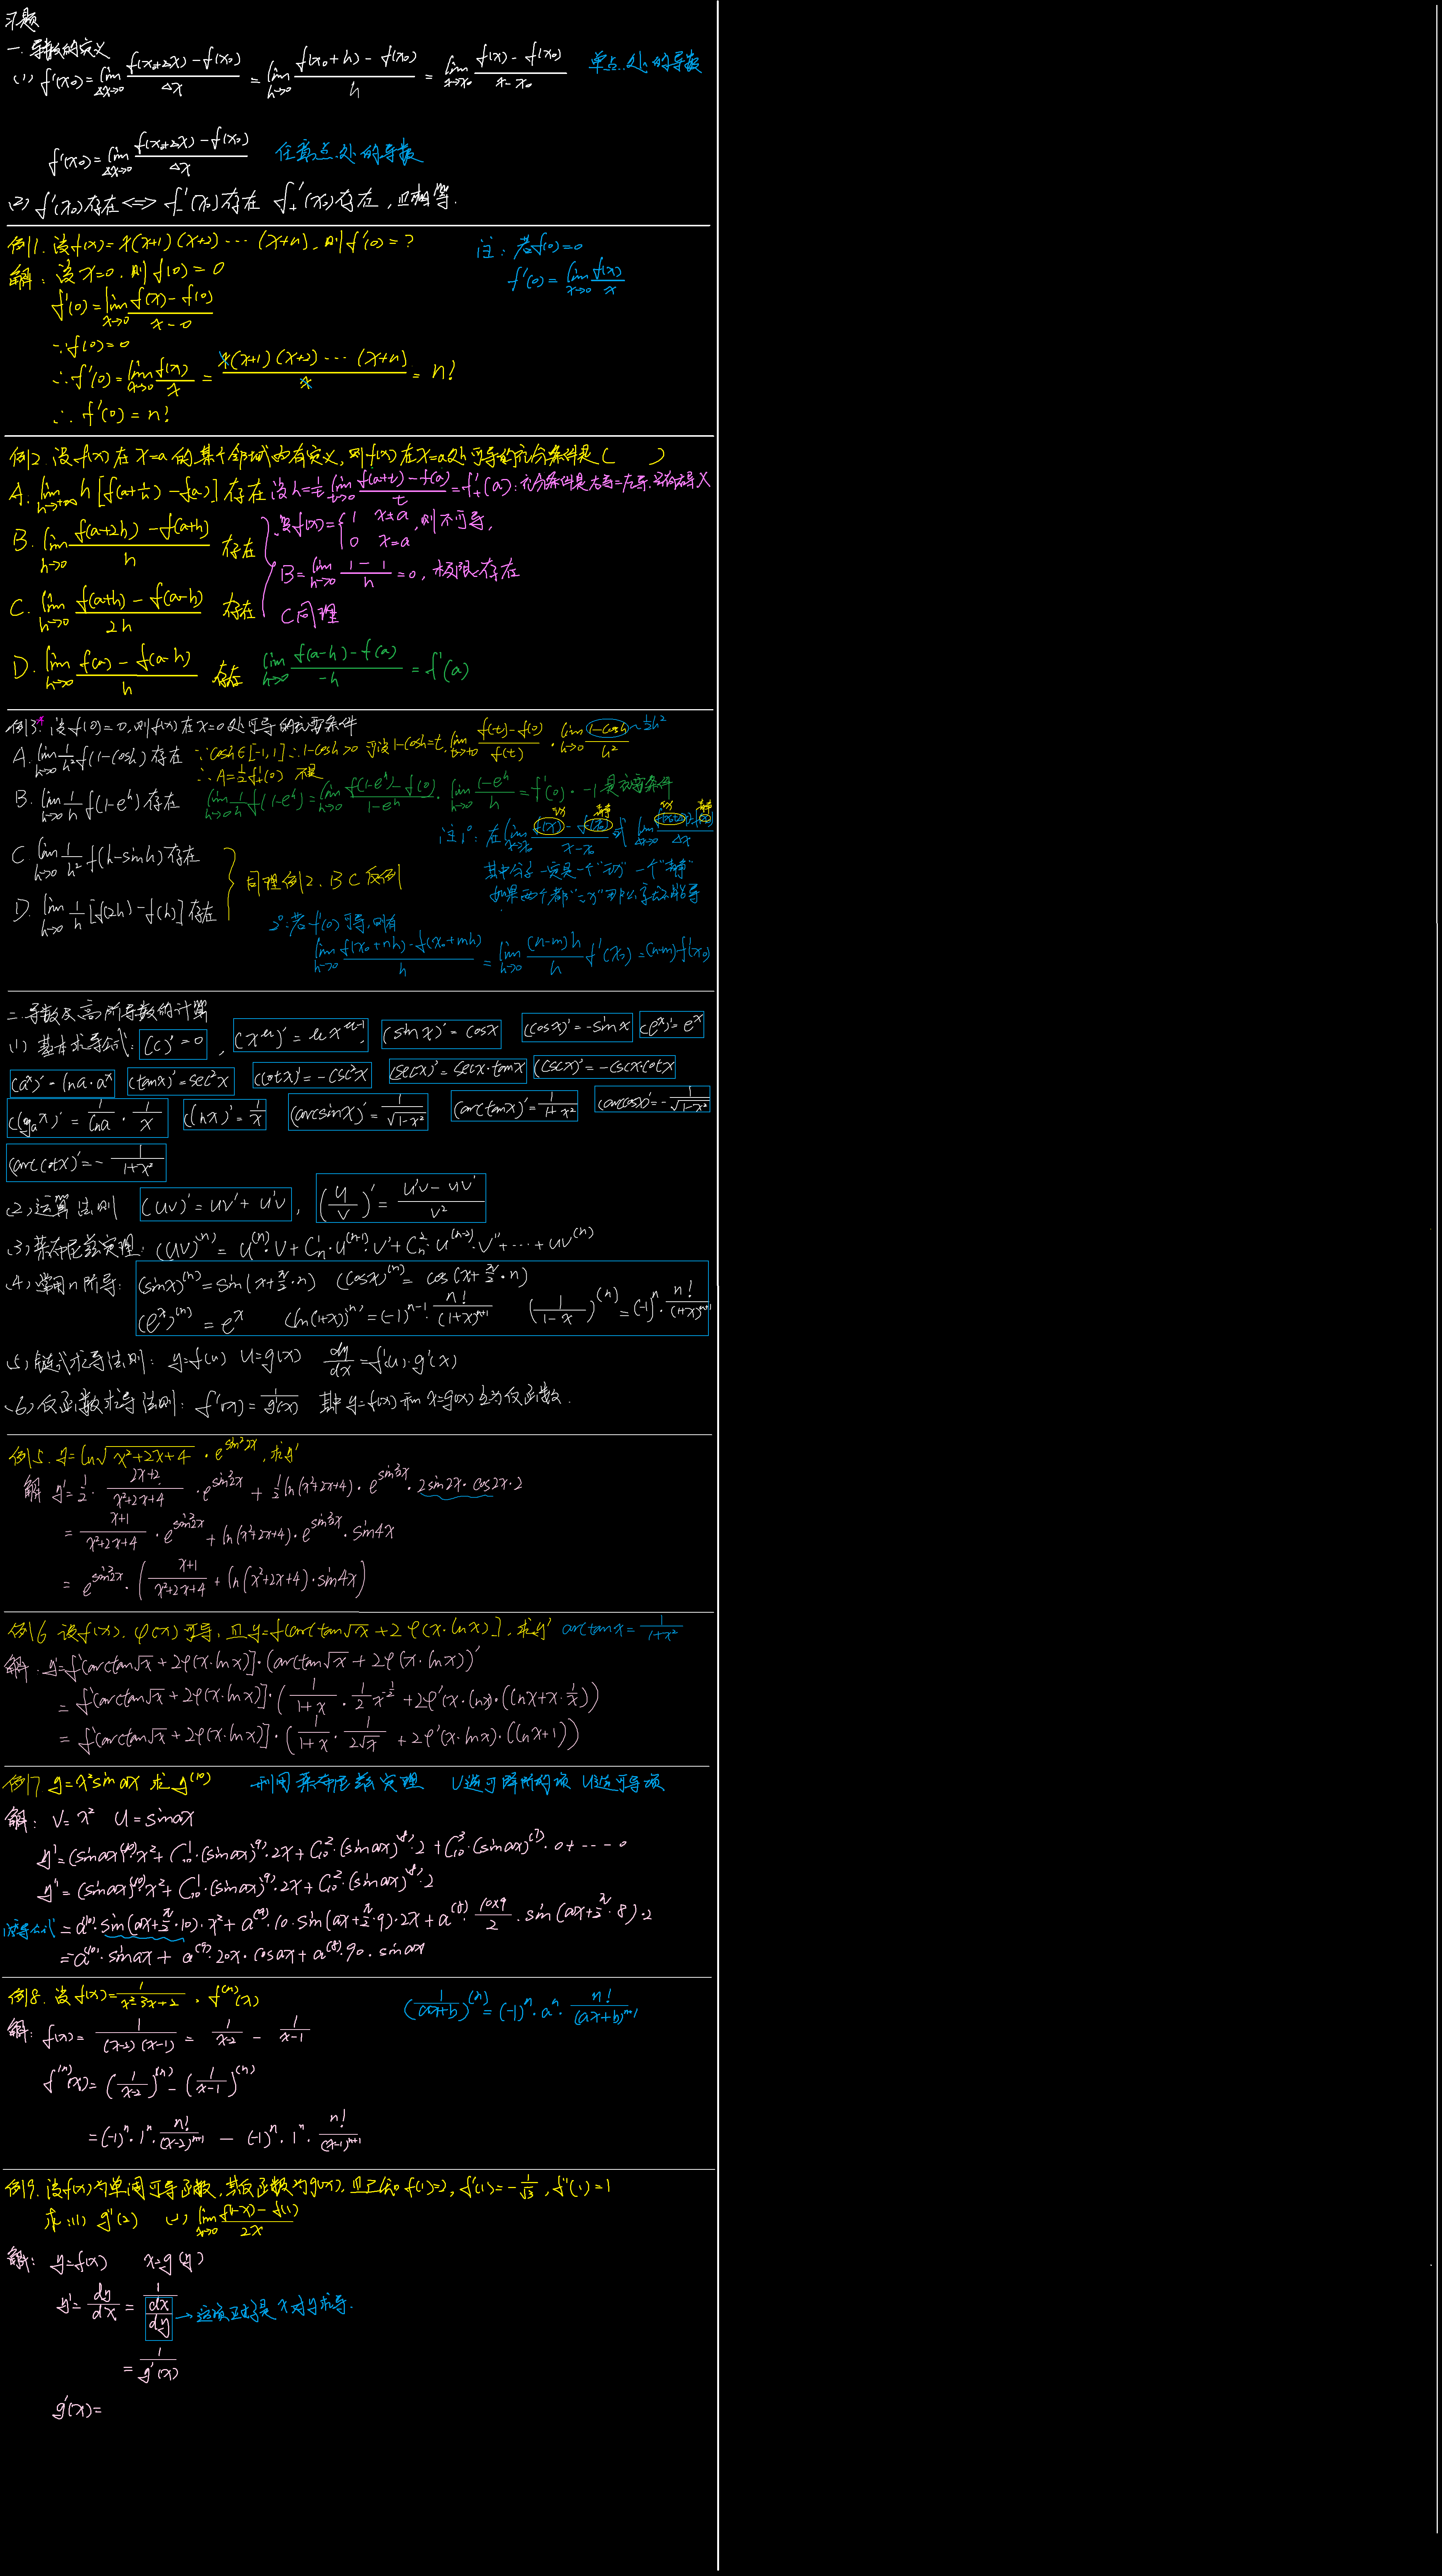 习题
一. 导数的定义
(1) f'(x₀)=lim_{Δx→0} (f(x₀+Δx)-f(x₀))/Δx = lim_{h→0} (f(x₀+h)-f(x₀))/h = lim_{x→x₀} (f(x)-f(x₀))/(x-x₀) 单点处的导数
f'(x₀)=lim_{Δx→0} (f(x₀+Δx)-f(x₀))/Δx 任意点处的导数
(2) f'(x₀)存在 <=> f₋'(x₀)存在 f₊'(x₀)存在, 且相等.
例1. 设f(x)=x(x+1)(x+2)···(x+n), 则f'(0)=?
注: 若f(0)=0
f'(0)=lim_{x→0} f(x)/x
解: 设x=0, 则f(0)=0
f'(0)=lim_{x→0} (f(x)-f(0))/(x-0)
∵f(0)=0
∴f'(0)=lim_{x→0} f(x)/x = x(x+1)(x+2)···(x+n)/x = n!
∴ f'(0)=n!
例2. 设f(x)在x=a的某个邻域内有定义, 则f(x)在x=a处可导的充分条件是( )
A. lim_{h→+∞} h[f(a+1/h)-f(a)]存在 设h=1/t lim_{t→0} (f(a+t)-f(a))/t=f₊'(a): 充分条件是右导=左导, 只有右导 X
B. lim_{h→0} (f(a+2h)-f(a+h))/h 存在
设f(x)={1 x≠a, 0 x=a, 则不可导,
B=lim_{h→0} (1-1)/h=0, 极限存在
C. lim_{h→0} (f(a+h)-f(a-h))/2h 存在
C同理
D. lim_{h→0} (f(a)-f(a-h))/h 存在 lim_{h→0} (f(a-h)-f(a))/-h = f'(a)
例3.* 设f(0)=0, 则f(x)在x=0处可导的充要条件
A. lim_{h→0} 1/h² f(1-cosh) 存在 ∵cosh∈[-1,1] ∴1-cosh>0 可设1-cosh=t, lim_{t→+0} (f(t)-f(0))/f(t) · lim_{h→0} (1-cosh)/h² ~½h²
∴A=½f₊'(0) 不是
B. lim_{h→0} 1/h f(1-e^h)存在 lim_{h→0} 1/h f(1-e^h)=lim_{h→0} (f(1-e^h)-f(0))/(1-e^h) · lim_{h→0} (1-e^h)/h=f'(0)·-1 是充要条件
注1°: 在lim_{x→x₀} (f(x)-f(x₀))/(x-x₀) 或 lim_{Δx→0} (f(x₀+Δx)-f(x₀))/Δx
动 静 动 静
C lim_{h→0} 1/h² f(h-sinh)存在
其中分子一定是一个"动"一个"静"
同理例2. BC 反例
D. lim_{h→0} 1/h [f(2h)-f(h)]存在
2°: 若f'(0)可导, 则有
lim_{h→0} (f(x₀+nh)-f(x₀+mh))/h = lim_{h→0} (n-m)h/h f'(x₀)=(n-m)f'(x₀)
二. 导数及高阶导数的计算
(1) 基本求导公式: (c)'=0, (x^μ)'=μx^(μ-1), (sinx)'=cosx (cosx)'=-sinx (e^x)'=e^x
(a^x)'=lna·a^x (tanx)'=sec²x (cotx)'=-csc²x (secx)'=secx·tanx (cscx)'=-cscx·cotx
(log_a x)'=1/lna · 1/x (lnx)'=1/x (arcsinx)'=1/√(1-x²) (arctanx)'=1/(1+x²) (arccosx)'=-1/√(1-x²)
(arccotx)'=-1/(1+x²)
(2) 运算法则 (uv)'=uv'+u'v, (u/v)'=(u'v-uv')/v²
(3) 莱布尼兹定理: (uv)^(n)=u^(n)·v+C_n^1·u^(n-1)·v'+C_n^2·u^(n-2)·v''+···+uv^(n)
(4) 常用n阶导: (sinx)^(n)=sin(x+π/2·n) (cosx)^(n)=cos(x+π/2·n)
(e^x)^(n)=e^x (ln(1+x))^(n)=(-1)^(n-1)·n!/(1+x)^(n+1) (1/(1-x))^(n)=(-1)^n·n!/(1+x)^(n+1)
(5) 链式求导法则: y=f(u) u=g(x) dy/dx=f'(u)·g'(x)
(6) 反函数求导法则: f'(x)=1/g'(x) 其中y=f(x)和x=g(x)互为反函数.
例5. y=ln√(x²+2x+4)·e^(sin²2x), 求y'
解 y'=1/2·(2x+2)/(x²+2x+4)·e^(sin²2x)+½ln(x²+2x+4)·e^(sin²2x)·2sin2x·cos2x·2
=(x+1)/(x²+2x+4)·e^(sin²2x)+ln(x²+2x+4)·e^(sin²2x)·sin4x
=e^(sin²2x)·((x+1)/(x²+2x+4)+ln(x²+2x+4)·sin4x)
例6 设f(x), φ(x)可导, 且y=f[arctan√x+2φ(x·lnx)], 求y' arctanx=1/(1+x²)
解: y'=f'[arctan√x+2φ(x·lnx)]·(arctan√x+2φ(x·lnx))'
=f'[arctan√x+2φ(x·lnx)]·(1/(1+x)·½x^(-½)+2φ'(x·lnx)·(lnx+x·1/x))
=f'[arctan√x+2φ(x·lnx)]·(1/(1+x)·1/(2√x)+2φ'(x·lnx)·(lnx+1))
例7 y=x²sinax 求y^(10) 利用莱布尼兹定理 V选可降阶的项 U选可导项
解: V=x² U=sinax
y'=(sinax)^(10)·x²+C_10^1·(sinax)^(9)·2x+C_10^2·(sinax)^(8)·2+C_10^3·(sinax)^(7)·0+----0
y'=(sinax)^(10)·x²+C_10^1·(sinax)^(9)·2x+C_10^2·(sinax)^(8)·2
=a^(10)·sin(ax+π/2·10)·x²+a^(9)·10·sin(ax+π/2·9)·2x+a^(8)·(10×9)/2·sin(ax+π/2·8)·2
=-a^(10)·sinax+a^(9)·20x·cosax+a^(8)·90·sinax
例8. 设f(x)=1/(x²-3x+2), f^(n)(x)
(1/(ax+b))^(n)=(-1)^n·a^n·n!/(ax+b)^(n+1)
解: f(x)=1/((x-2)(x-1))=1/(x-2)-1/(x-1)
f^(n)(x)=(1/(x-2))^(n)-(1/(x-1))^(n)
=(-1)^n·1^n·n!/(x-2)^(n+1)-(-1)^n·1^n·n!/(x-1)^(n+1)
例9. 设f(x)为单调可导函数, 其反函数为g(x), 且已知f(1)=2, f'(1)=-1/√3, f''(1)=1
求: (1) g'(2) (2) lim_{x→0} (f(1-x)-f(1))/2x
解: y=f(x) x=g(y)
y'=dy/dx=1/(dx/dy) →这项正好是x对y求导.
=1/g'(x)
g'(x)=